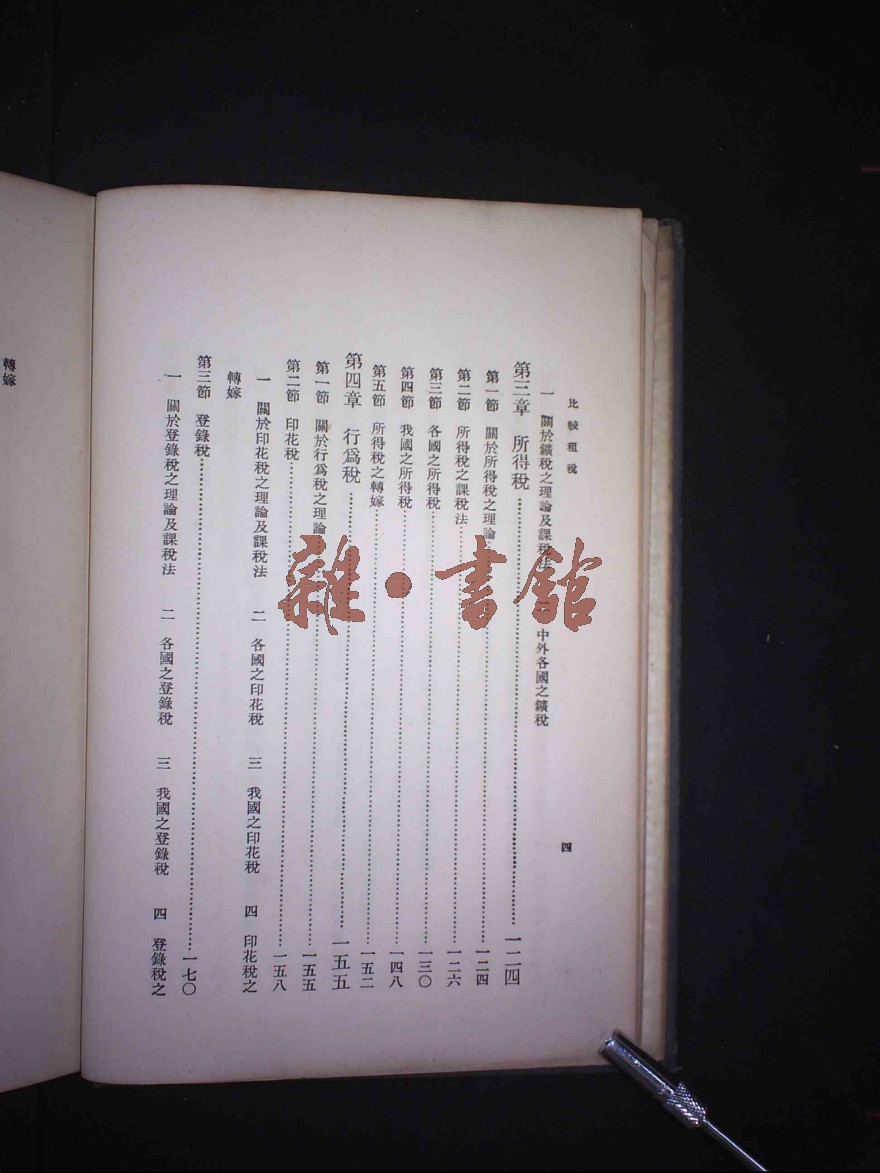 比較租稅
四
一 關於鑛稅之理論及課稅法 中外各國之鑛稅
第三章 所得稅……一二四
第一節 關於所得稅之理論……一二四
第二節 所得稅之課稅法……一二六
第三節 各國之所得稅……一三〇
第四節 我國之所得稅……一四八
第五節 所得稅之轉嫁……一五二
第四章 行爲稅……一五五
第一節 關於行爲稅之理論……一五五
第二節 印花稅……一五八
一 關於印花稅之理論及課稅法 二 各國之印花稅 三 我國之印花稅 四 印花稅之
轉嫁
第三節 登錄稅……一七〇
一 關於登錄稅之理論及課稅法 二 各國之登錄稅 三 我國之登錄稅 四 登錄稅之
轉嫁
雜·書館